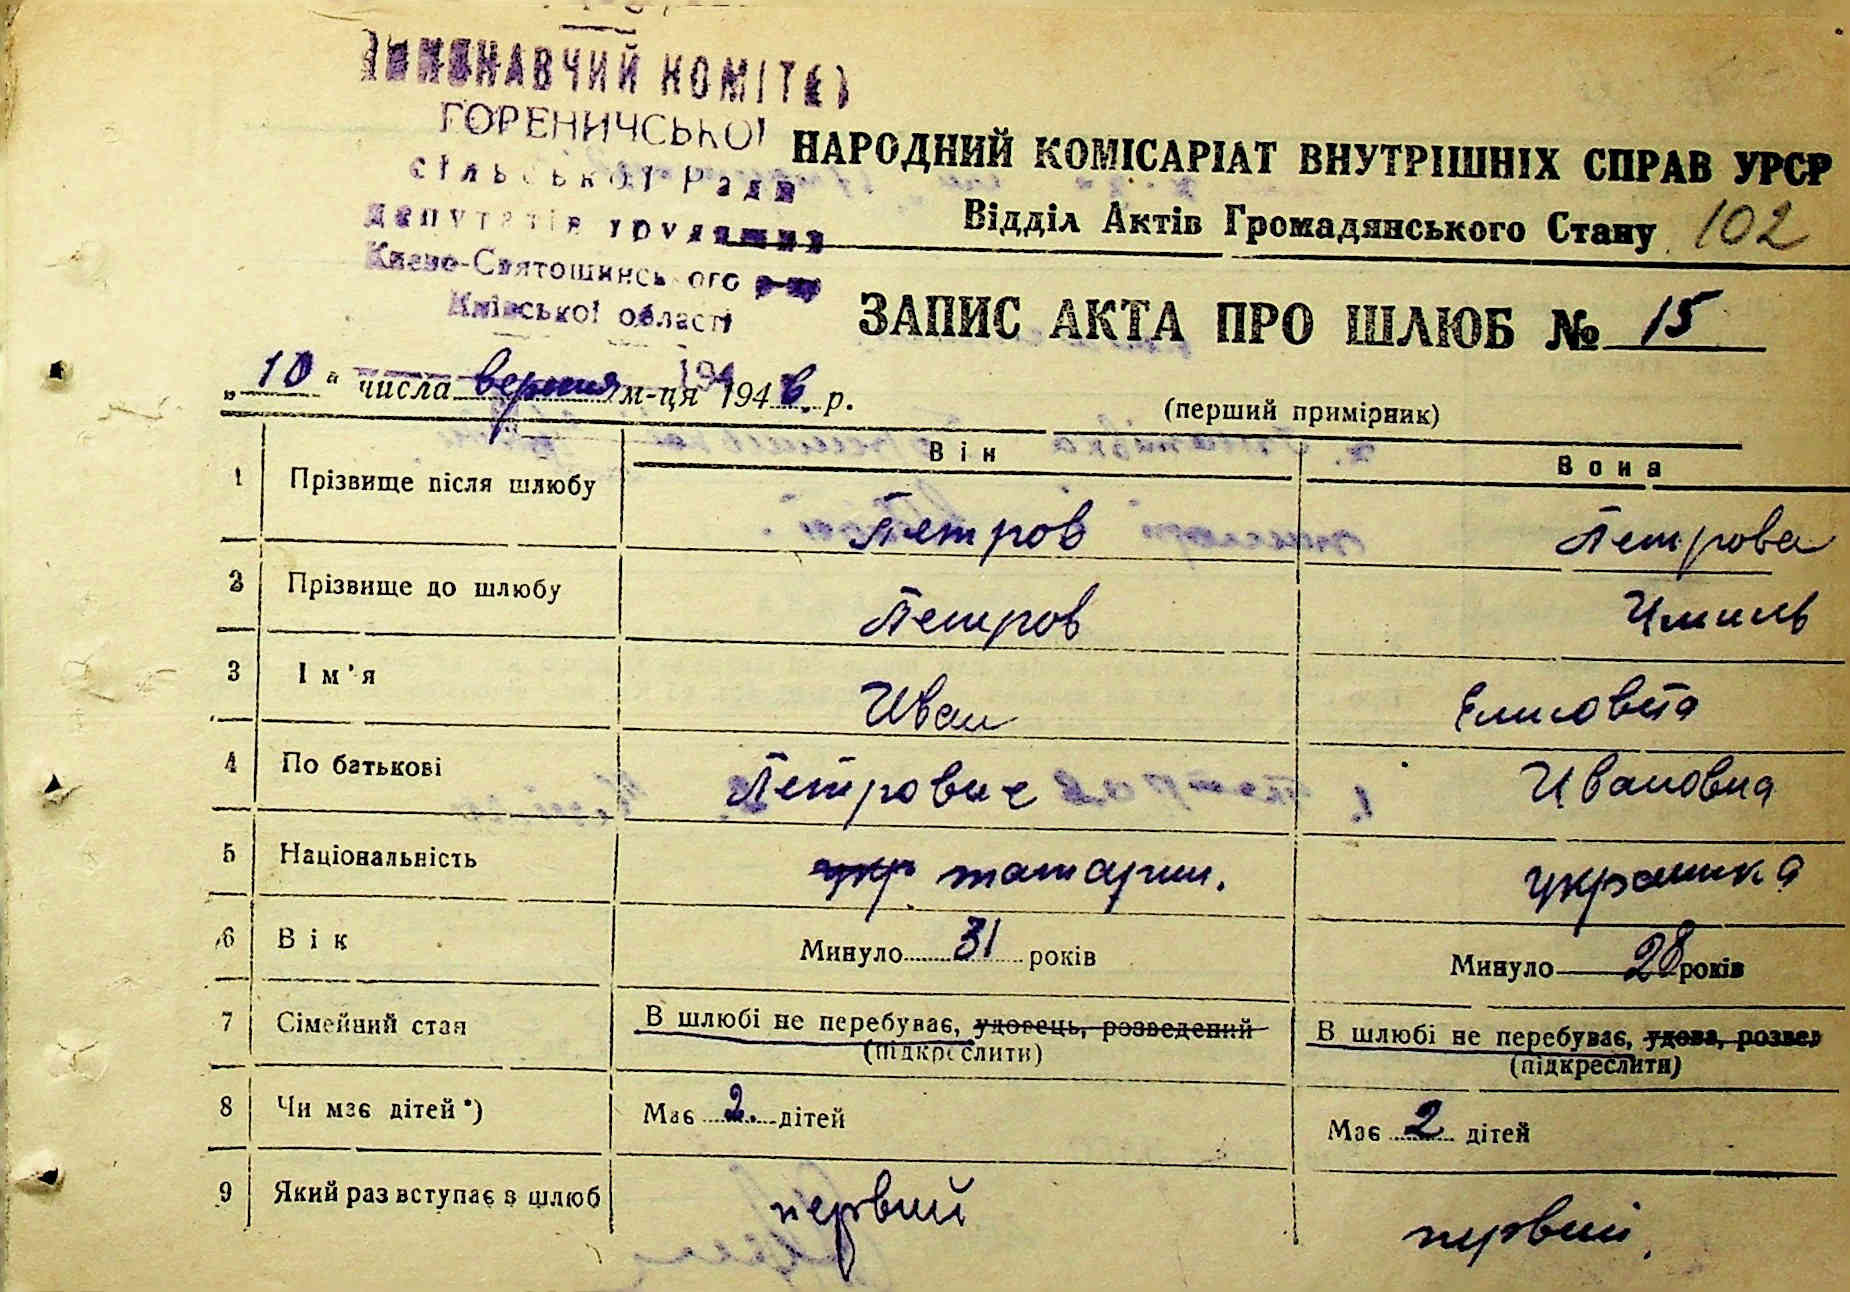 ВИКОНАВЧИЙ КОМІТЕТ
ГОРЕНИЧСЬКОЇ
сільської Ради
депутатів трудящих
Києво-Святошинського р-ну
Київської області
НАРОДНИЙ КОМІСАРІАТ ВНУТРІШНІХ СПРАВ УРСР
Відділ Актів Громадянського Стану 102
ЗАПИС АКТА ПРО ШЛЮБ № 15
„10“ числа вересня м-ця 1946 р.
(перший примірник)
Він Вона
1 Прізвище після шлюбу Петров Петрова
2 Прізвище до шлюбу Петров
3 Ім'я Иван Елисовета
4 По батькові Петрович Ивановна
5 Національність укр татарин. українка
6 Вік Минуло 31 років Минуло 28 років
7 Сімейний стан В шлюбі не перебуває, удовець, розведений В шлюбі не перебуває, удова, розвед
(підкреслити) (підкреслити)
8 Чи має дітей*) Має 2. дітей Має 2 дітей
9 Який раз вступає в шлюб первий первий.